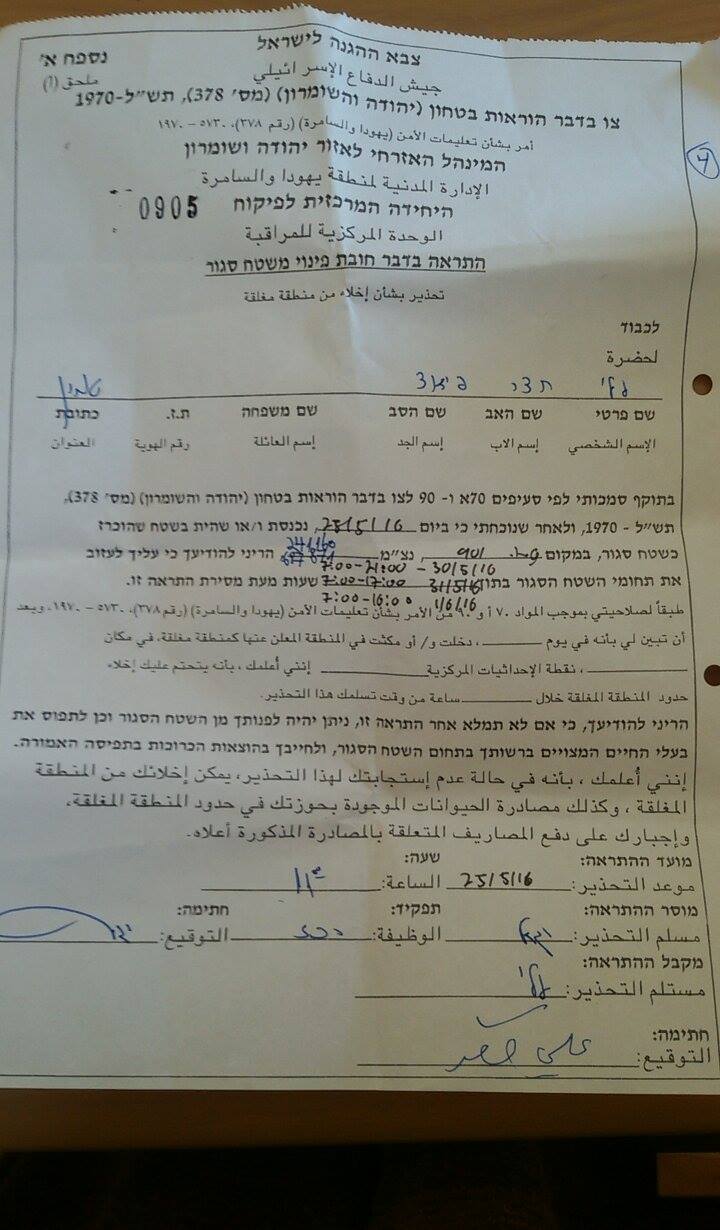 צבא ההגנה לישראל
נספח א'
جيش الدفاع الإسرائيلي
ملحق (أ)
צו בדבר הוראות בטחון (יהודה והשומרון) (מס' 378), תש"ל-1970
أمر بشأن تعليمات الأمن (يهودا والسامرة) (رقم ٣٧٨)، ٥٧٣٠ - ١٩٧٠
4
המינהל האזרחי לאזור יהודה ושומרון
الإدارة المدنية لمنطقة يهودا والسامرة
היחידה המרכזית לפיקוח
0905
الوحدة المركزية للمراقبة
התראה בדבר חובת פינוי משטח סגור
تحذير بشأن إخلاء من منطقة مغلقة
לכבוד
لحضرة
עלי
שם פרטי שם האב שם הסב שם משפחה ת.ז. כתובת
الإسم الشخصي إسم الاب إسم الجد إسم العائلة رقم الهوية العنوان
בתוקף סמכותי לפי סעיפים 70א ו- 90 לצו בדבר הוראות בטחון (יהודה והשומרון) (מס' 378),
תש"ל - 1970, ולאחר שנוכחתי כי ביום 25/5/16, נכנסת ו/או שהית בשטח שהוכרז
כשטח סגור, במקום 901, נצ"מ הריני להודיעך כי עליך לעזוב
7:00-21:00 - 30/5/16
את תחומי השטח הסגור בתוך 7:00-17:00 31/5/16 שעות מעת מסירת התראה זו.
7:00-16:00 1/6/16
طبقاً لصلاحيتي بموجب المواد ٧٠ أ و ٩٠ من الأمر بشأن تعليمات الأمن (يهودا والسامرة) (رقم ٣٧٨)، ٥٧٣٠ - ١٩٧٠، وبعد
أن تبين لي بأنه في يوم ، دخلت و/ أو مكثت في المنطقة المعلن عنها كمنطقة مغلقة، في مكان
، نقطة الإحداثيات المركزية إنني أعلمك، بأنه يتحتم عليك إخلاء
حدود المنطقة المغلقة خلال ساعة من وقت تسلمك هذا التحذير.
הריני להודיעך, כי אם לא תמלא אחר התראה זו, ניתן יהיה לפנותך מן השטח הסגור וכן לתפוס את
בעלי החיים המצויים ברשותך בתחום השטח הסגור, ולחייבך בהוצאות הכרוכות בתפיסה האמורה.
إنني أعلمك ، بأنه في حالة عدم إستجابتك لهذا التحذير، يمكن إخلائك من المنطقة
المغلقة ، وكذلك مصادرة الحيوانات الموجودة بحوزتك في حدود المنطقة المغلقة،
وإجبارك على دفع المصاريف المتعلقة بالمصادرة المذكورة أعلاه.
מועד ההתראה: שעה:
موعد التحذير: 25/5/16 الساعة: 11
מוסר ההתראה: תפקיד: חתימה:
مسلم التحذير: الوظيفة: التوقيع:
מקבל ההתראה:
مستلم التحذير: עלי
חתימה:
التوقيع: علي